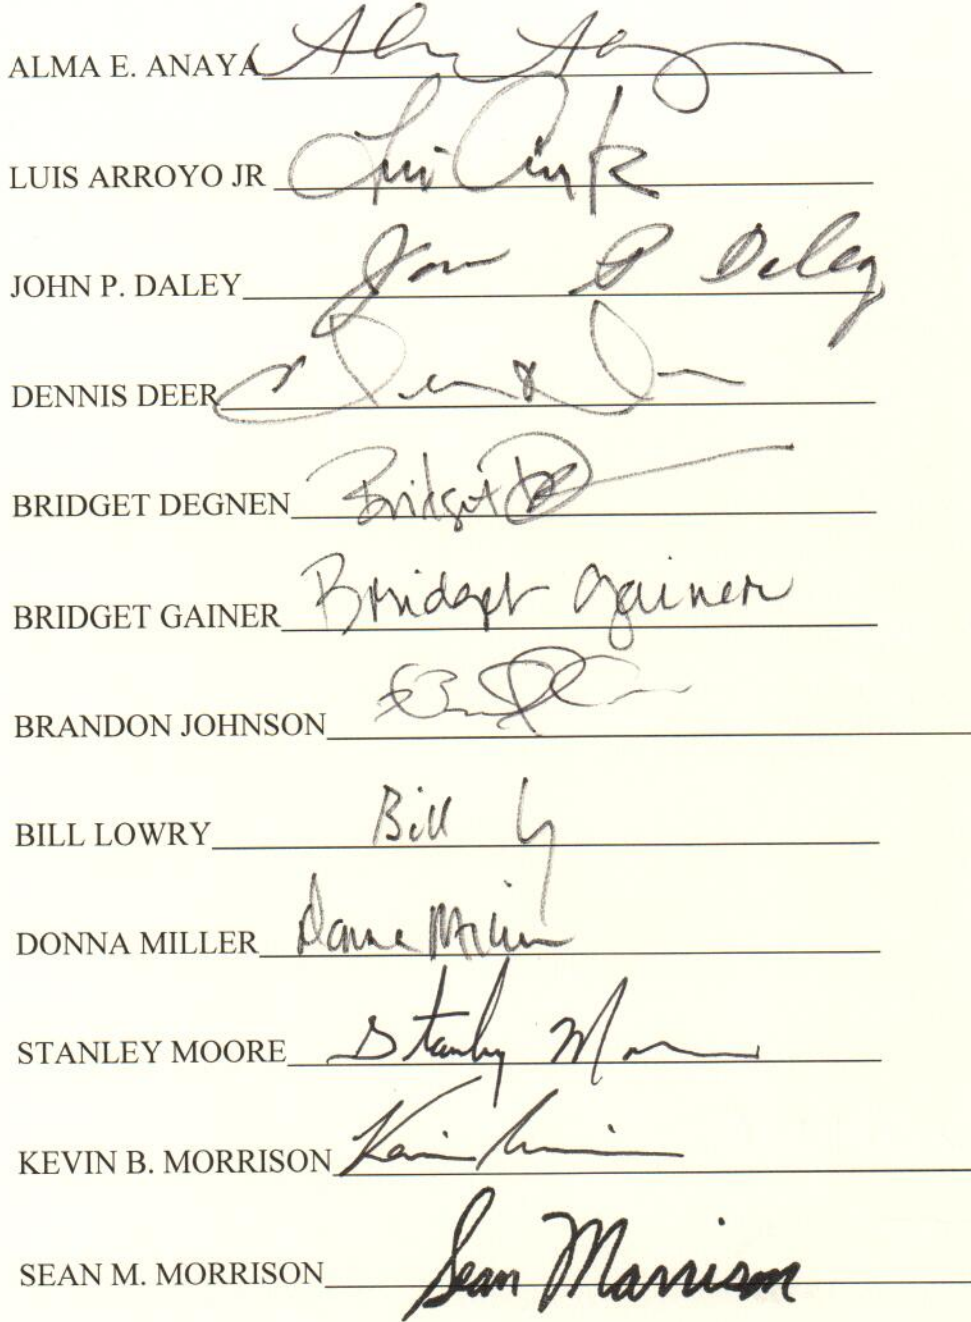 ALMA E. ANAYA
LUIS ARROYO JR
JOHN P. DALEY John P Daley
DENNIS DEER
BRIDGET DEGNEN Bridget
BRIDGET GAINER Bridget Gainer
BRANDON JOHNSON
BILL LOWRY Bill
DONNA MILLER Donna Miller
STANLEY MOORE Stanley
KEVIN B. MORRISON Kevin
SEAN M. MORRISON Sean Morrison